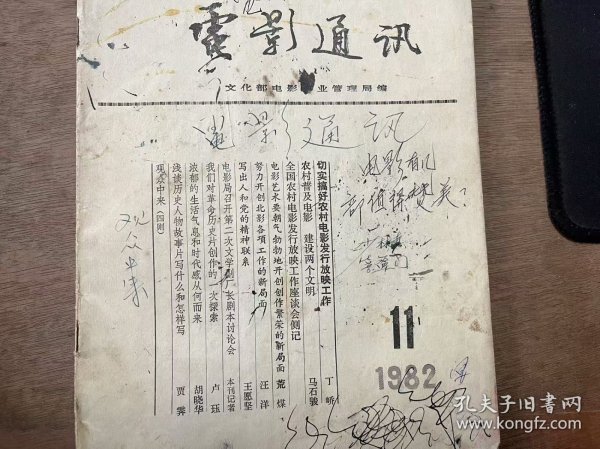 電影通訊
文化部电影事业管理局编
電影通讯
切实搞好农村电影发行放映工作 丁峤
农村普及电影 建设两个文明 马石骏
全国农村电影发行放映工作座谈会侧记
电影艺术要朝气勃勃地开创创作繁荣的新局面 荒煤
努力开创北影各项工作的新局面 汪洋
写出人和党的精神联系 王愿坚
电影局召开第二次文学剧本厂长讨论会 本刊记者
我们对革命历史片创作的一次探索 卢珏
浓郁的生活气息和时代感从何而来 胡晓华
浅谈历史人物故事片写什么和怎样写 贾霁
观众中来（四则）
观众中来
11
1982
孔夫子旧书网